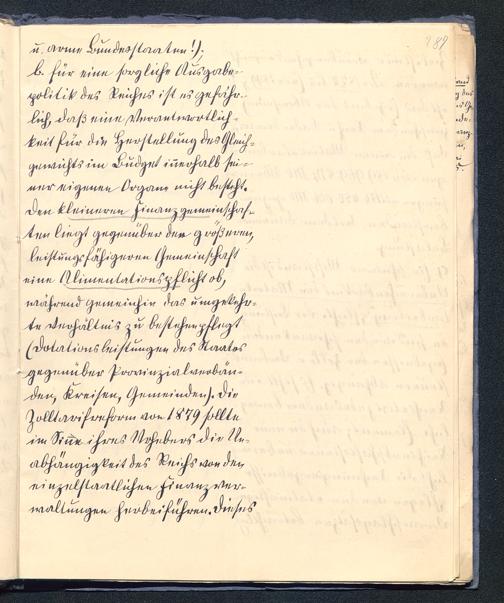 189
u. arme Bundesstaaten!).
b. für eine sorgliche Ausgabe-
politik des Reiches ist es gefähr-
lich, daß eine Verantwortlich-
keit für die Herstellung des Gleich-
gewichts im Budget innerhalb sei-
ner eigenen Organe nicht besteht.
Den kleineren Finanzgemeinschaf-
ten liegt gegenüber der größeren,
leistungsfähigeren Gemeinschaft
eine Alimentationspflicht ob,
während gemeinhin das umgekehr-
te Verhältnis zu bestehen pflegt
(Dotationsleistungen des Staates
gegenüber Provinzialverbän-
den, Kreisen, Gemeinden). Die
Zolltarifreform von 1879 sollte
im Sinne ihres Urhebers die Un-
abhängigkeit des Reichs von den
einzelstaatlichen Finanzver-
waltungen herbeiführen. Dieses